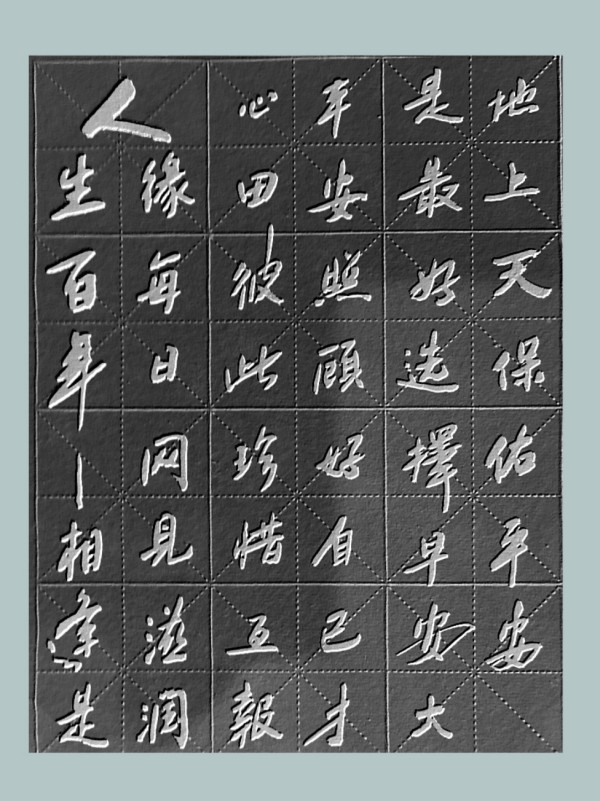 人生百年—相逢是
緣每日网見滋润
心田彼此珍惜互報
平安照頋好自己才
是最好选擇早安大
地上天保佑平安